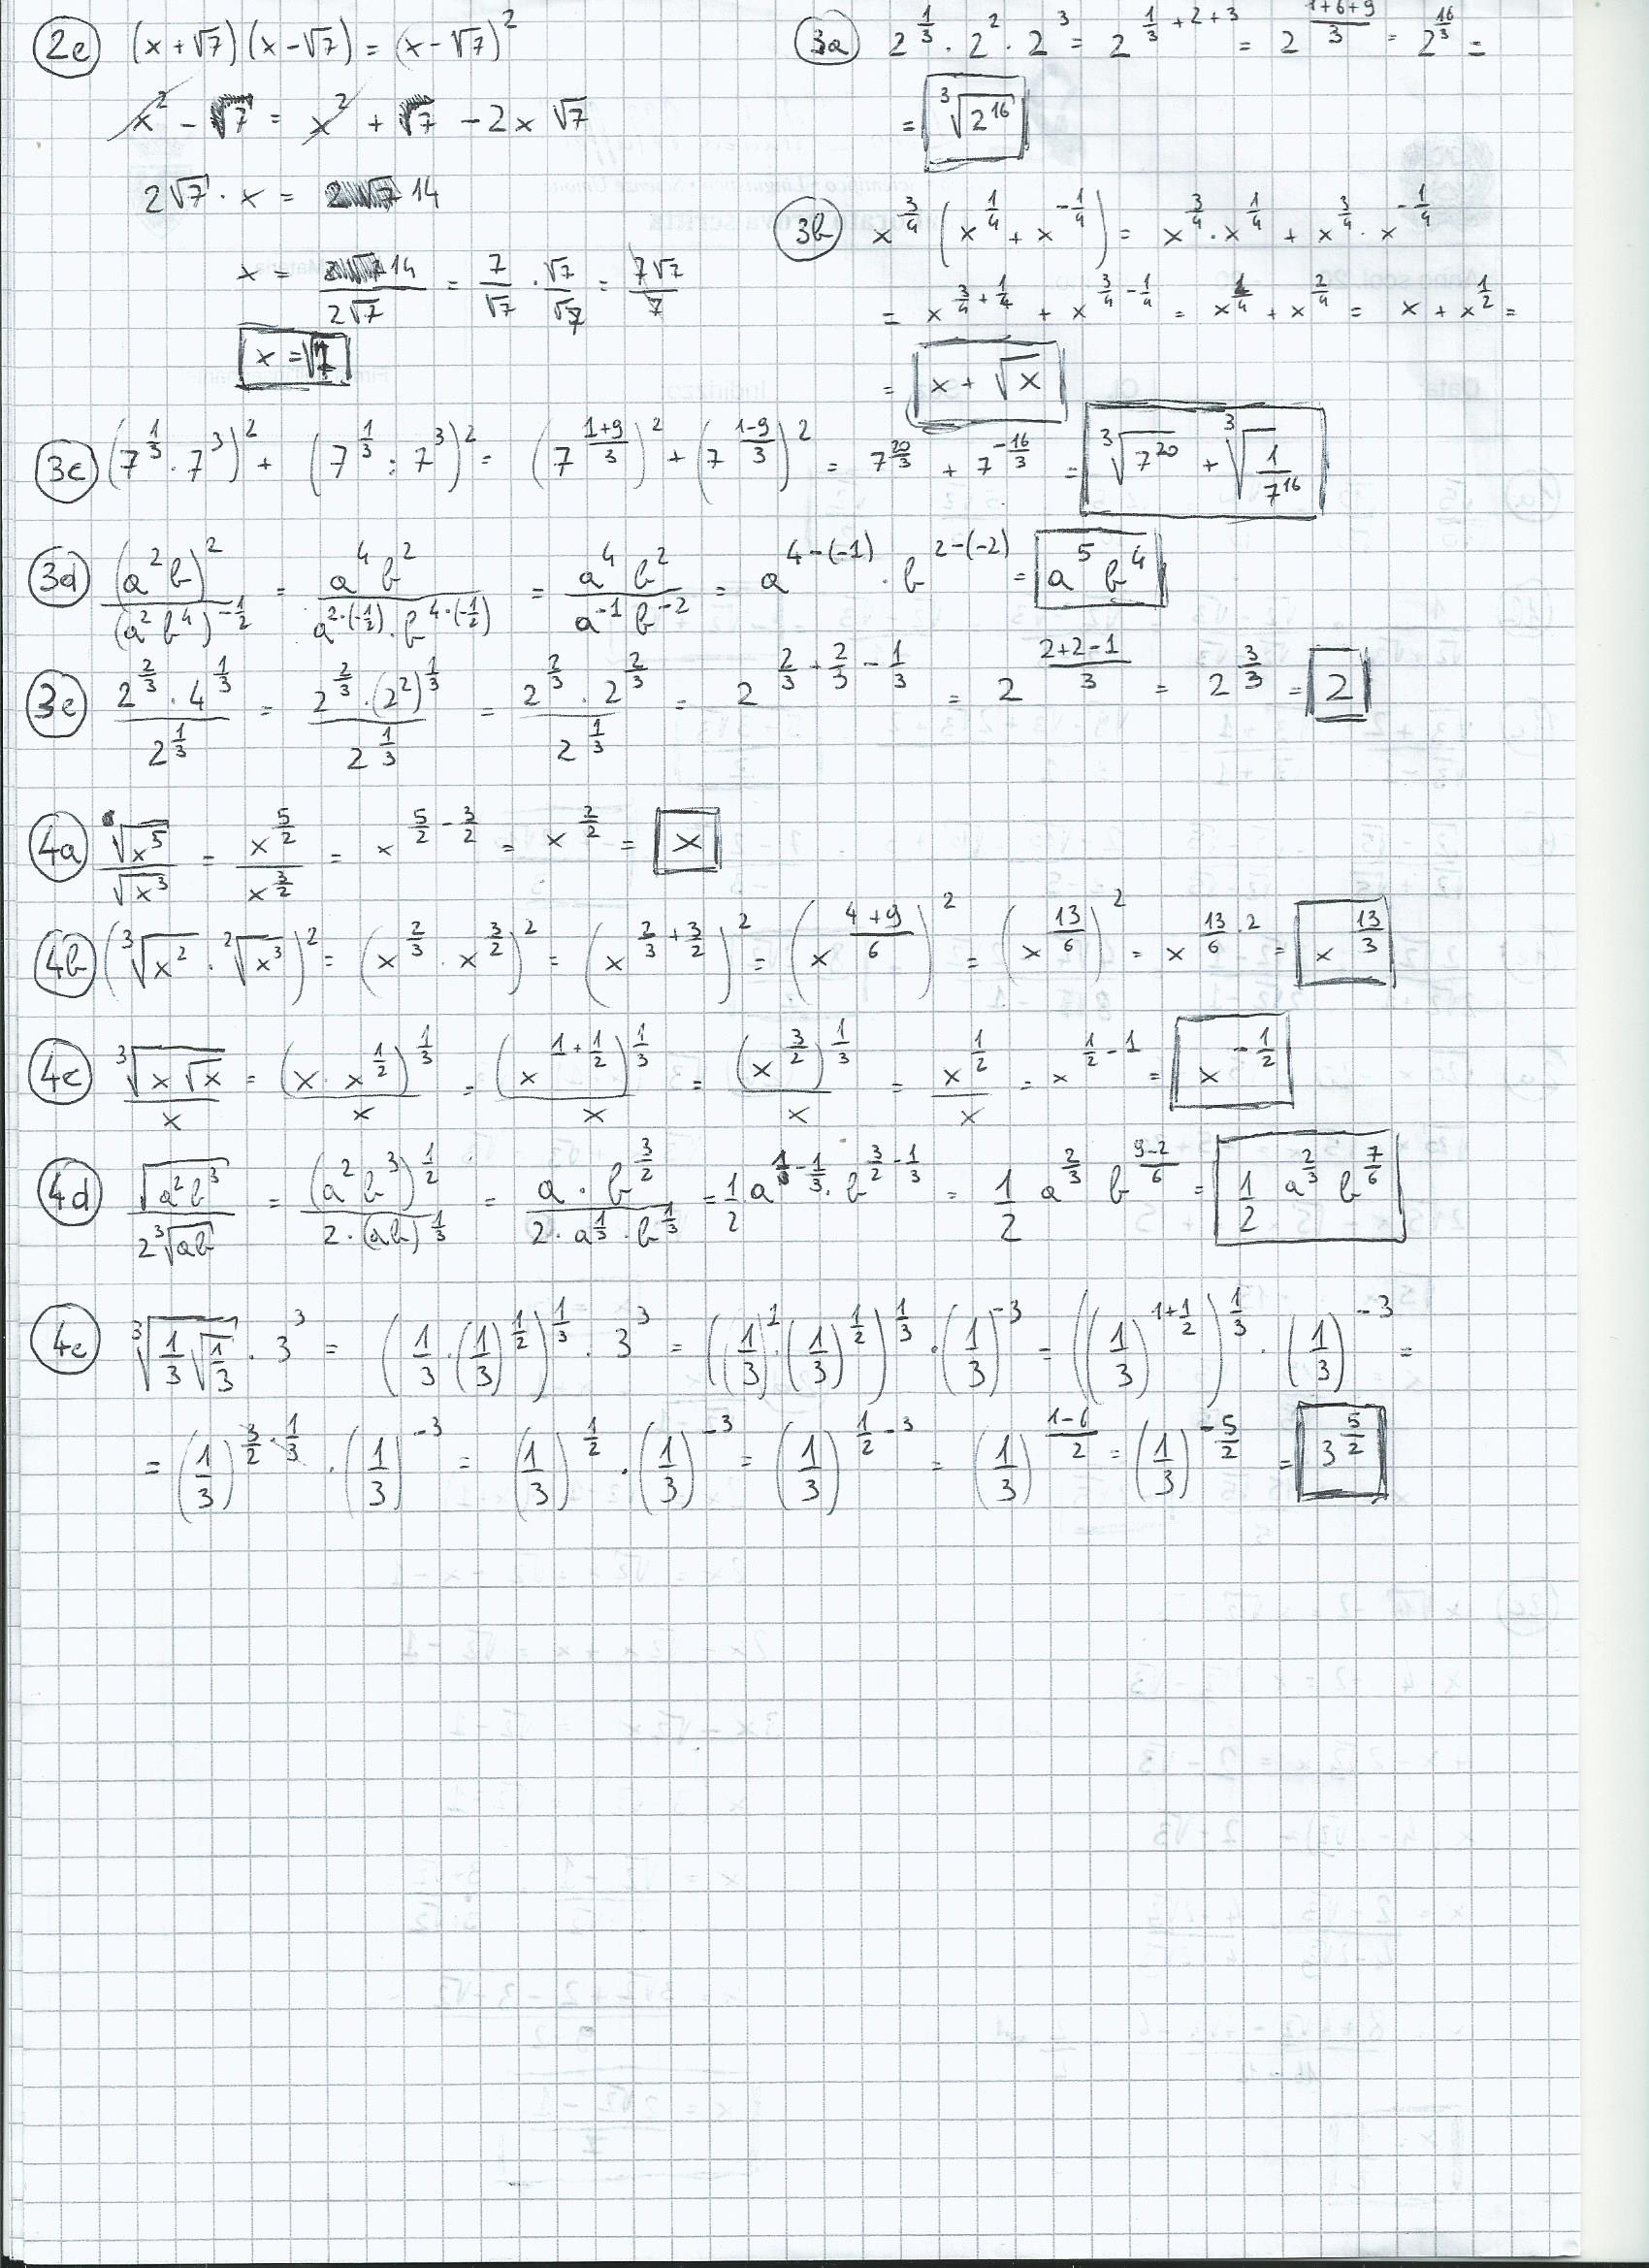 2e (x+√7)(x-√7) = (x-√7)²
x² - 7 = x² + 7 - 2x √7
2√7 · x = 14
x = 14/(2√7) = 7/√7 · √7/√7 = 7√7/7
x = √7
3a 2^(1/3) · 2² · 2³ = 2^(1/3+2+3) = 2^((1+6+9)/3) = 2^(16/3) =
= ³√(2^16)
3b x^(3/4) (x^(1/4) + x^(-1/4)) = x^(3/4) · x^(1/4) + x^(3/4) · x^(-1/4)
= x^(3/4+1/4) + x^(3/4-1/4) = x^(4/4) + x^(2/4) = x + x^(1/2) =
= x + √x
3c (7^(1/3) · 7³)² + (7^(1/3) : 7³)² = (7^((1+9)/3))² + (7^((1-9)/3))² = 7^(20/3) + 7^(-16/3) = ³√(7^20) + ³√(1/7^16)
3d (a²b)²/(a²b⁴)^(-1/2) = a⁴b²/(a^(2·(-1/2)) · b^(4·(-1/2))) = a⁴b²/(a^(-1) b^(-2)) = a^(4-(-1)) · b^(2-(-2)) = a⁵b⁴
3e (2^(2/3) · 4^(1/3))/2^(1/3) = (2^(2/3) · (2²)^(1/3))/2^(1/3) = (2^(2/3) · 2^(2/3))/2^(1/3) = 2^(2/3+2/3-1/3) = 2^((2+2-1)/3) = 2^(3/3) = 2
4a √(x⁵)/√(x³) = x^(5/2)/x^(3/2) = x^(5/2-3/2) = x^(2/2) = x
4b (³√(x²) · ²√(x³))² = (x^(2/3) · x^(3/2))² = (x^(2/3+3/2))² = (x^((4+9)/6))² = (x^(13/6))² = x^(13/6·2) = x^(13/3)
4c ³√(x√x)/x = (x · x^(1/2))^(1/3)/x = (x^(1+1/2))^(1/3)/x = (x^(3/2))^(1/3)/x = x^(1/2)/x = x^(1/2-1) = x^(-1/2)
4d √(a²b³)/(2³√(ab)) = (a²b³)^(1/2)/(2·(ab)^(1/3)) = (a · b^(3/2))/(2 · a^(1/3) · b^(1/3)) = 1/2 a^(1-1/3) · b^(3/2-1/3) = 1/2 a^(2/3) b^((9-2)/6) = 1/2 a^(2/3) b^(7/6)
4e ³√(1/3 √(1/3)) · 3³ = (1/3 · (1/3)^(1/2))^(1/3) · 3³ = ((1/3)¹ · (1/3)^(1/2))^(1/3) · (1/3)^(-3) = ((1/3)^(1+1/2))^(1/3) · (1/3)^(-3) =
= (1/3)^(3/2·1/3) · (1/3)^(-3) = (1/3)^(1/2) · (1/3)^(-3) = (1/3)^(1/2-3) = (1/3)^((1-6)/2) = (1/3)^(-5/2) = 3^(5/2)